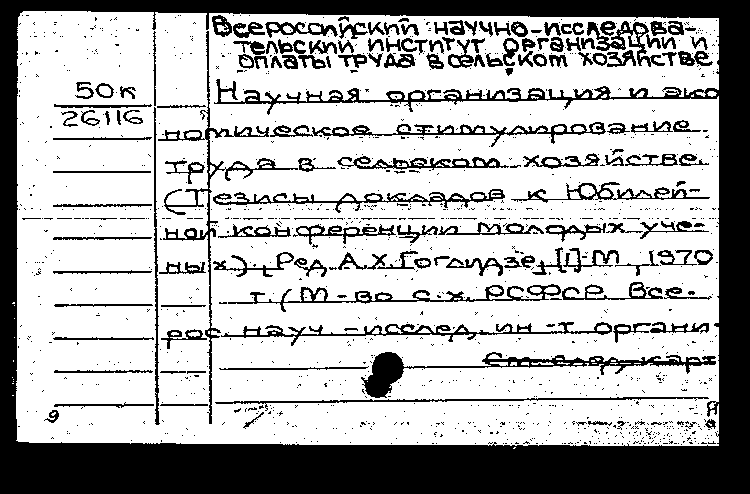 Всероссийский научно-исследова-
тельский институт организации и
оплаты труда в сельском хозяйстве.
50к
26116
Научная организация и эко
номическое стимулирование
труда в сельском хозяйстве.
(Тезисы докладов к Юбилей-
ной конференции молодых уче-
ных). [Ред. А.Х. Гоглидзе]. [1]-М, 1970
т. (М-во с.х. РСФСР. Все-
рос. науч.-исслед. ин-т органи-
См. след. карт
9